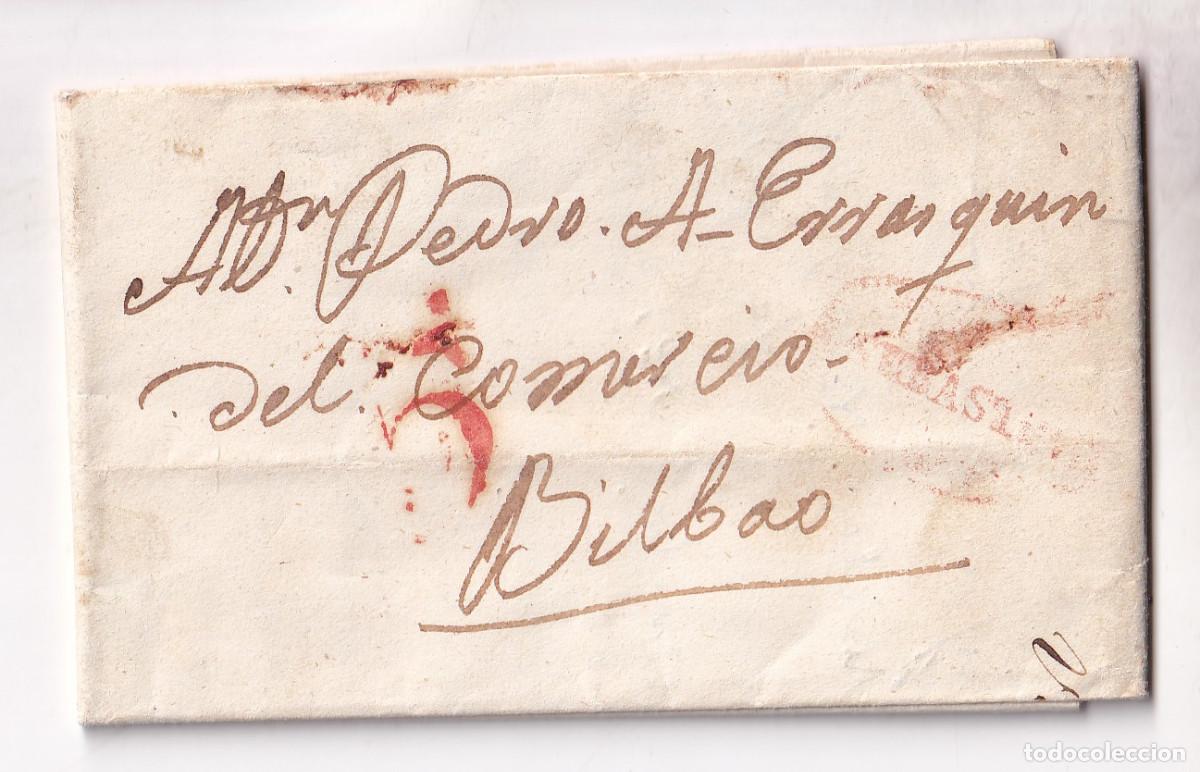 A Dn. Pedro. A- Errasquin
del. Comercio-
5
Bilbao
todocoleccion